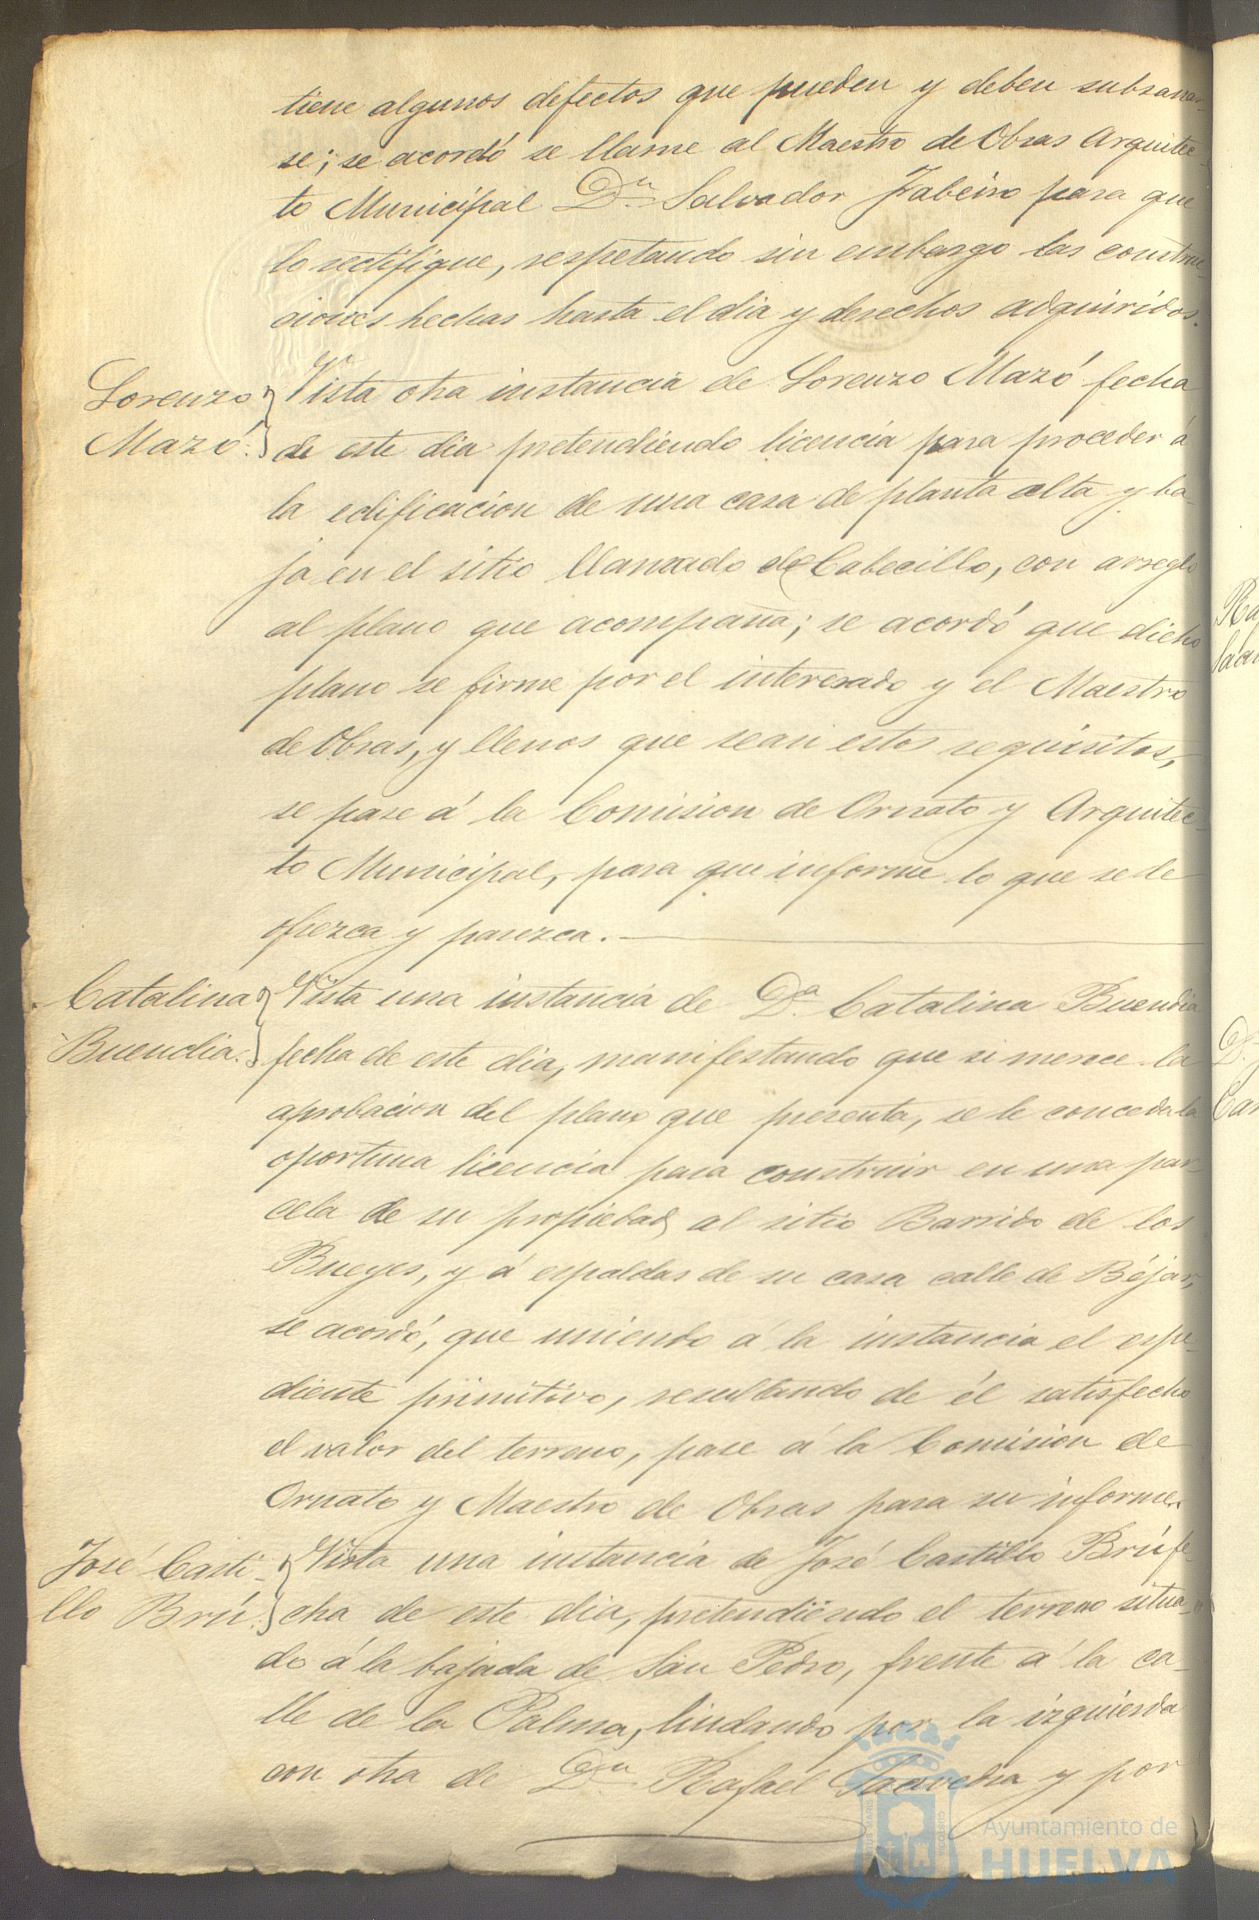 tiene algunos defectos que pueden y deben subsanar-
se; se acordó se llame al Maestro de Obras Arquitec-
to Municipal Dn. Salvador Jabeiro para que
lo rectifique, respetando sin embargo las construc-
ciones hechas hasta el dia y derechos adquiridos.
Lorenzo
Mazó.
Vista otra instancia de Lorenzo Mazó fecha
de este dia pretendiendo licencia para proceder á
la edificacion de una casa de planta alta y ba-
ja en el sitio llamado de Cabecillo, con arreglo
al plano que acompaña; se acordó que dicho
plano se firme por el interesado y el Maestro
de Obras, y llenos que sean estos requisitos,
se pase á la Comision de Ornato y Arquitec-
to Municipal, para que informe lo que se le
ofrezca y parezca.
Catalina
Buendia.
Vista una instancia de Da. Catalina Buendia
fecha de este dia, manifestando que si merece la
aprobacion del plano que presenta, se le conceda la
oportuna licencia para construir en una par-
cela de su propiedad al sitio Barrido de los
Bueyes, y á espaldas de su casa calle de Béjar,
se acordó, que uniendo á la instancia el espe-
diente primitivo, resultando de él satisfecho
el valor del terreno, pase á la Comision de
Ornato y Maestro de Obras para su informe.
José Casti-
llo Brú.
Vista una instancia de José Castillo Brú fe-
cha de este dia, pretendiendo el terreno situa-
do á la bajada de San Pedro, frente á la ca-
lle de la Palma, lindando por la izquierda
con otra de Dn. Rafael Saavedra y por
Ayuntamiento de
HUELVA